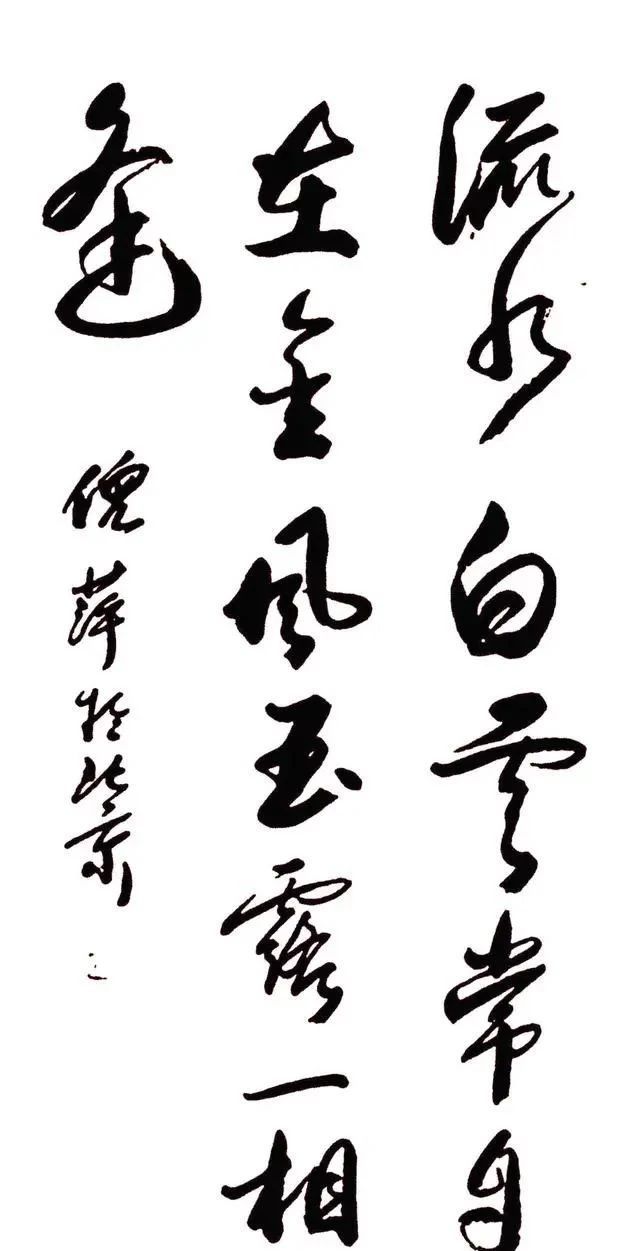 流水白雲常自
在金風玉露一相
逢
倪萍於北京